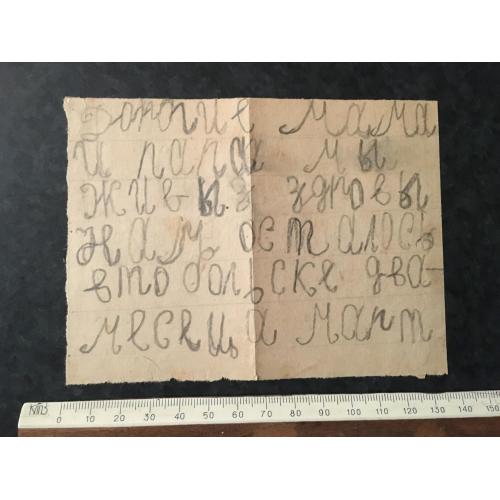 Дорогие мама
и папа мы
живы здровы
нам осталось
втобольске два
месеца март
0 10 20 30 40 50 60 70 80 90 100 110 120 130 140 150